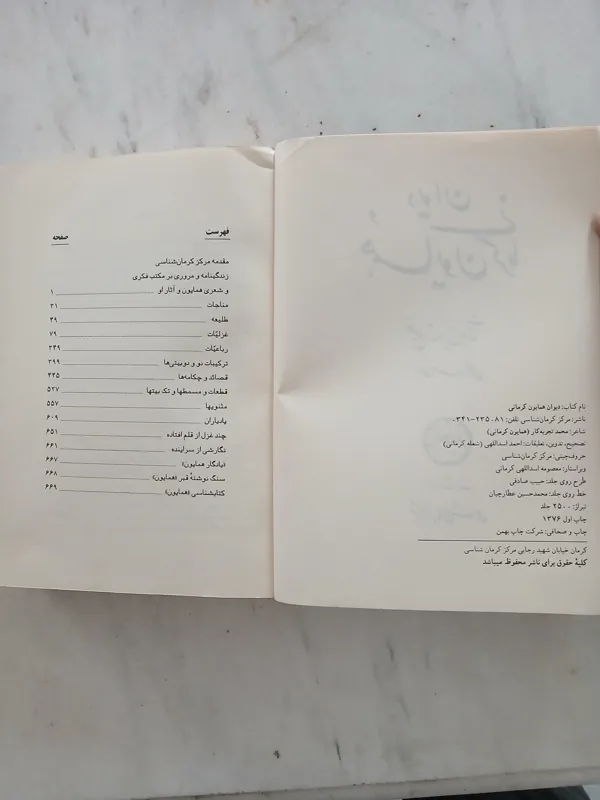 نام کتاب: دیوان همایون کرمانی
ناشر: مرکز کرمان‌شناسی تلفن: ۲۳۵۰۸۱-۰۳۴۱
شاعر: محمد تجربه‌کار (همایون کرمانی)
تصحیح، تدوین، تعلیقات: احمد اسداللهی (شعله کرمانی)
حروفچینی: مرکز کرمان‌شناسی
ویراستار: معصومه اسداللهی کرمانی
طرح روی جلد: حبیب صادقی
خط روی جلد: محمدحسین عطارچیان
تیراژ: ۲۵۰۰ جلد
چاپ اول ۱۳۷۶
چاپ و صحافی: شرکت چاپ بهمن
کرمان خیابان شهید رجایی مرکز کرمان شناسی
کلیهٔ حقوق برای ناشر محفوظ میباشد
فهرست صفحه
مقدمه مرکز کرمان‌شناسی
زندگینامه و مروری بر مکتب فکری
و شعری همایون و آثار او ۱
مناجات ۳۱
طلیعه ۴۹
غزلیّات ۷۹
رباعیّات ۳۴۹
ترکیبات نو و دوبیتی‌ها ۳۹۹
قصائد و چکامه‌ها ۴۴۵
قطعات و مسمطها و تک بیتها ۵۲۷
مثنویها ۵۵۷
یادیاران ۶۰۹
چند غزل از قلم افتاده ۶۵۱
نگارشی از سراینده ۶۶۱
(یادگار همایون) ۶۶۷
سنگ نوشتهٔ قبر (همایون) ۶۶۸
کتابشناسی (همایون) ۶۶۹